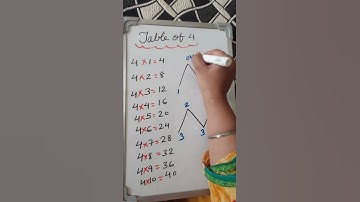 Table of 4
4 × 1 = 4
4 × 2 = 8
4 × 3 = 12
4 × 4 = 16
4 × 5 = 20
4 × 6 = 24
4 × 7 = 28
4 × 8 = 32
4 × 9 = 36
4 × 10 = 40
1
2
3
3